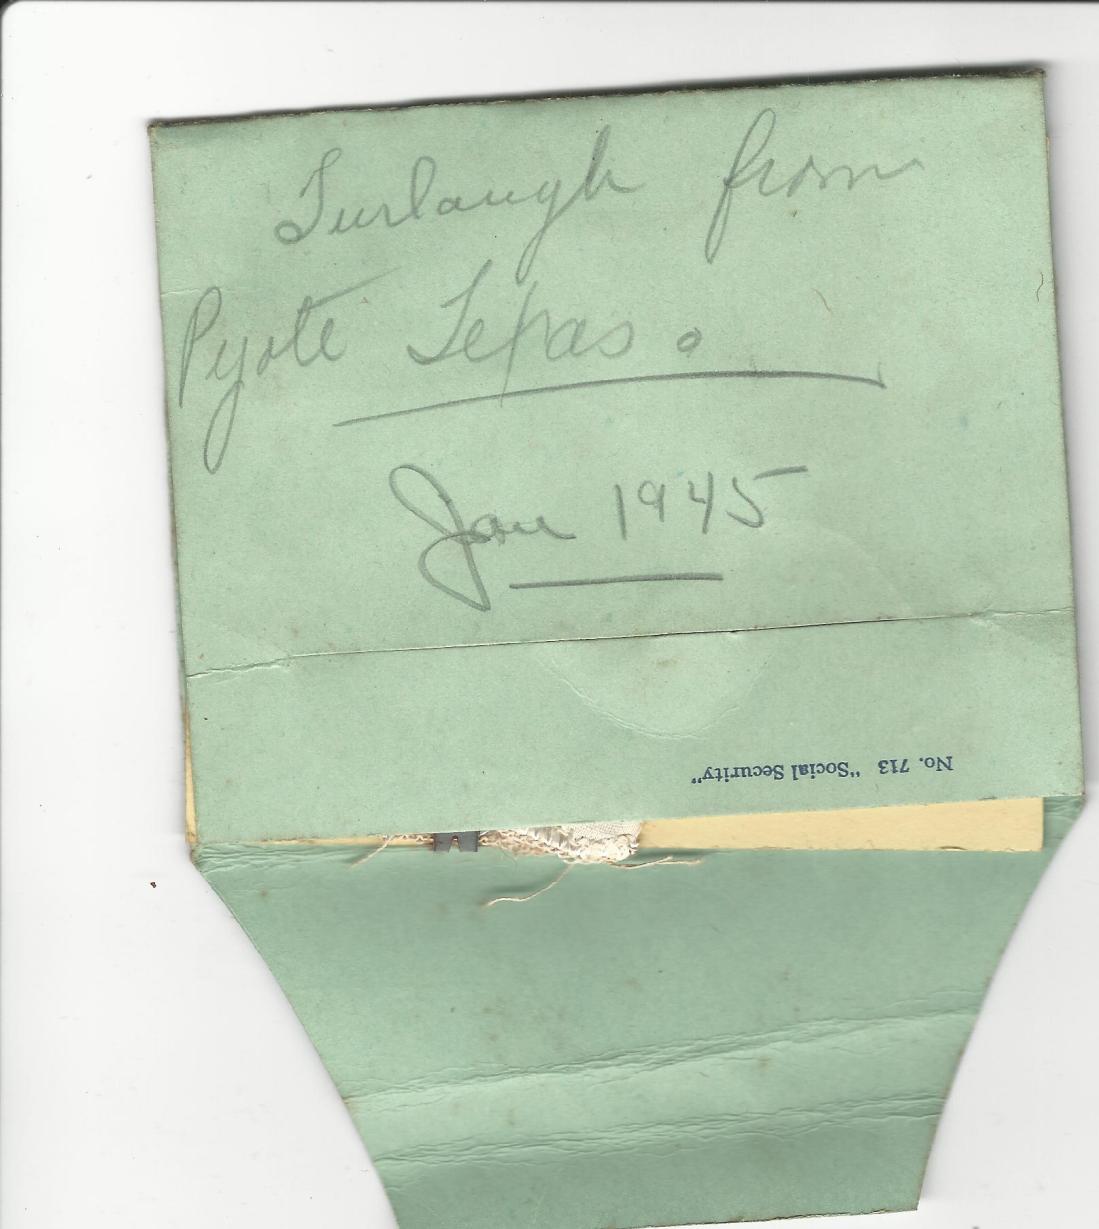 Furlaugh from
Pyote Texas.
Jan 1945
No. 713 "Social Security"